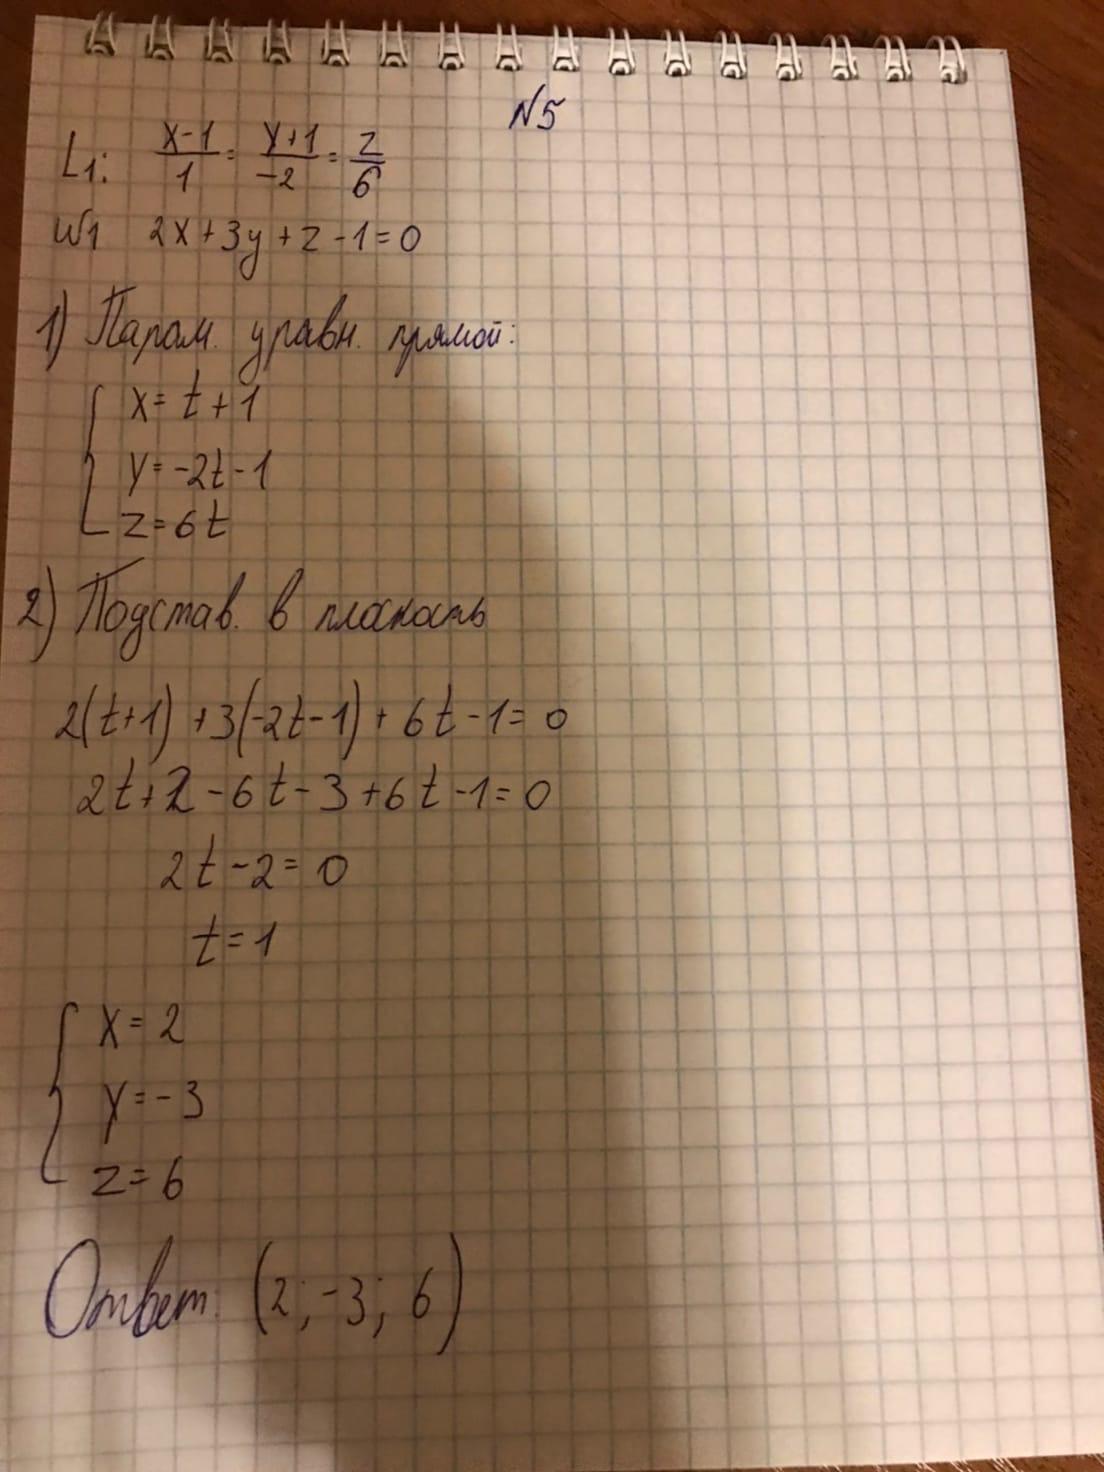 N5
L1: x-1/1 = y+1/-2 = z/6
W1 2x+3y+z-1=0
1) Парам. уравн. прямой:
x= t+1
y=-2t-1
z=6t
2) Подстав. в плоскость
2(t+1)+3(-2t-1)+6t-1=0
2t+2-6t-3+6t-1=0
2t-2=0
t=1
x=2
y=-3
z=6
Ответ: (2;-3; 6)